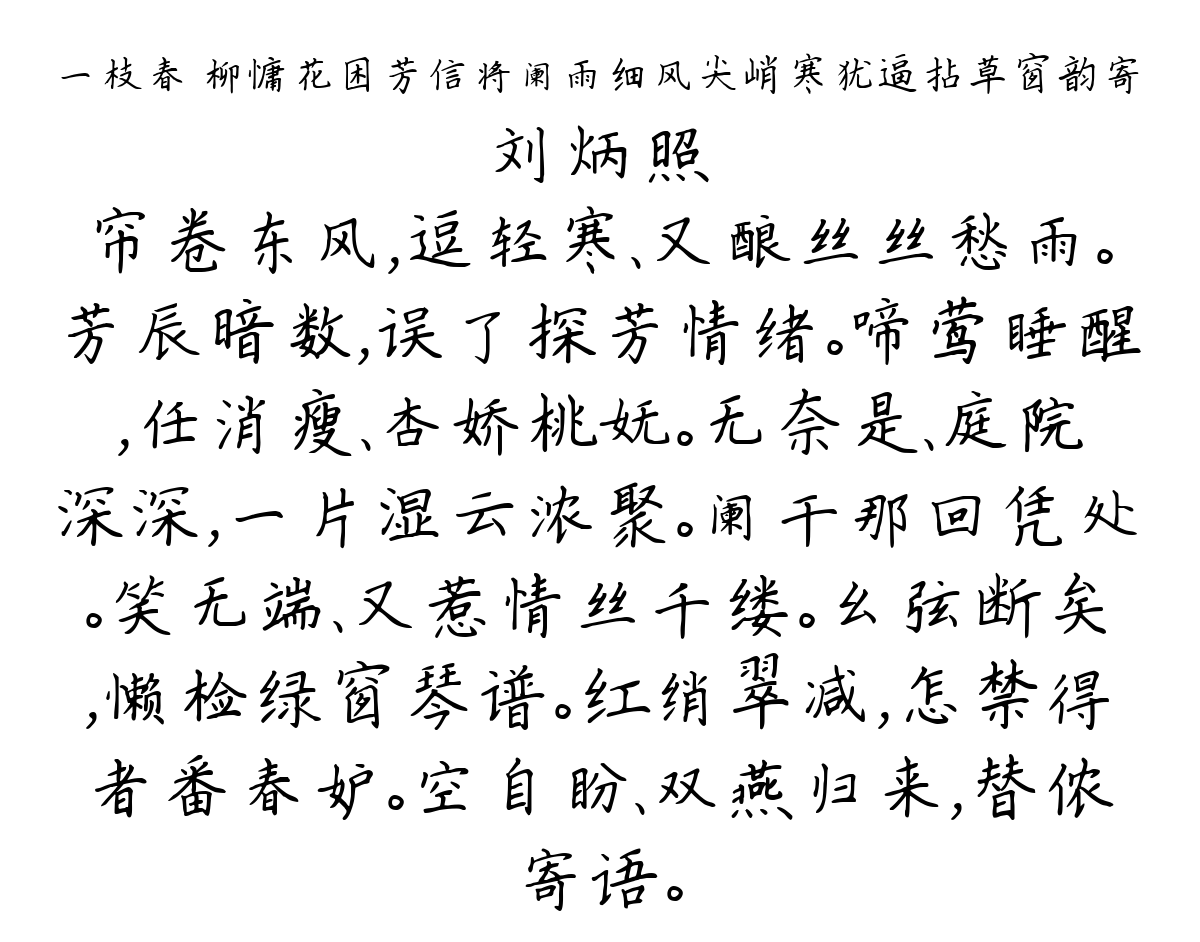 一枝春 柳慵花困芳信将阑雨细风尖峭寒犹逼拈草窗韵寄
刘炳照
帘卷东风,逗轻寒、又酿丝丝愁雨。
芳辰暗数,误了探芳情绪。啼莺睡醒
,任消瘦、杏娇桃妩。无奈是、庭院
深深,一片湿云浓聚。阑干那回凭处
。笑无端、又惹情丝千缕。幺弦断矣
,懒检绿窗琴谱。红绡翠减,怎禁得
者番春妒。空自盼、双燕归来,替侬
寄语。